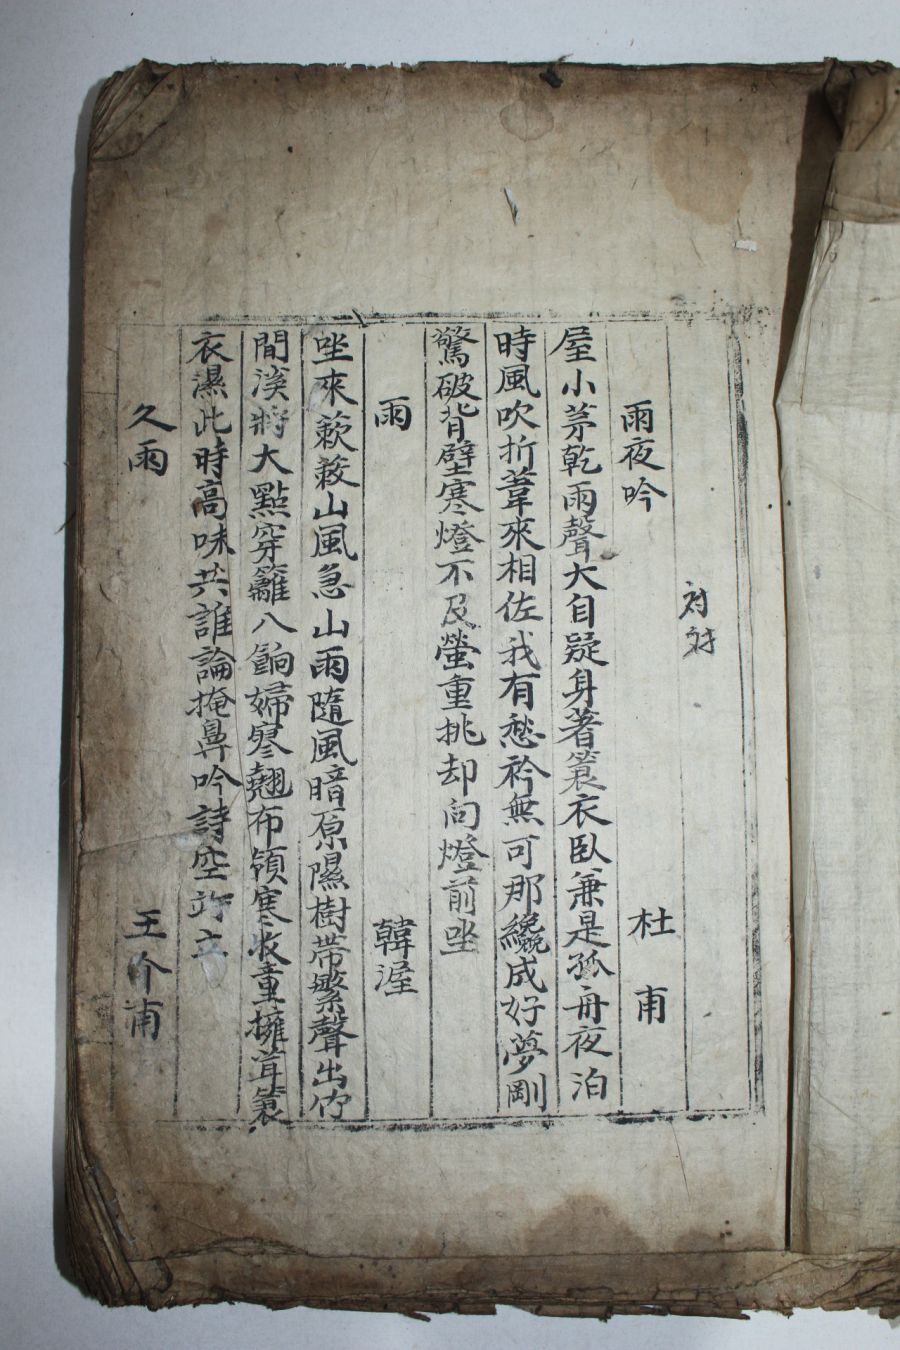 雨夜吟 杜甫
屋小茅乾雨聲大自疑身著簑衣臥兼是孤舟夜泊
時風吹折葦來相佐我有愁衿無可那纔成好夢剛
驚破背壁寒燈不及螢重挑却向燈前坐
雨 韓渥
坐來蔌蔌山風急山雨隨風暗原隰樹帶繁聲出竹
間溪將大點穿籬入餉婦寒翹布領寒收童擁茸簑
衣濕此時高味共誰論掩鼻吟詩空竚立
久雨 王介甫